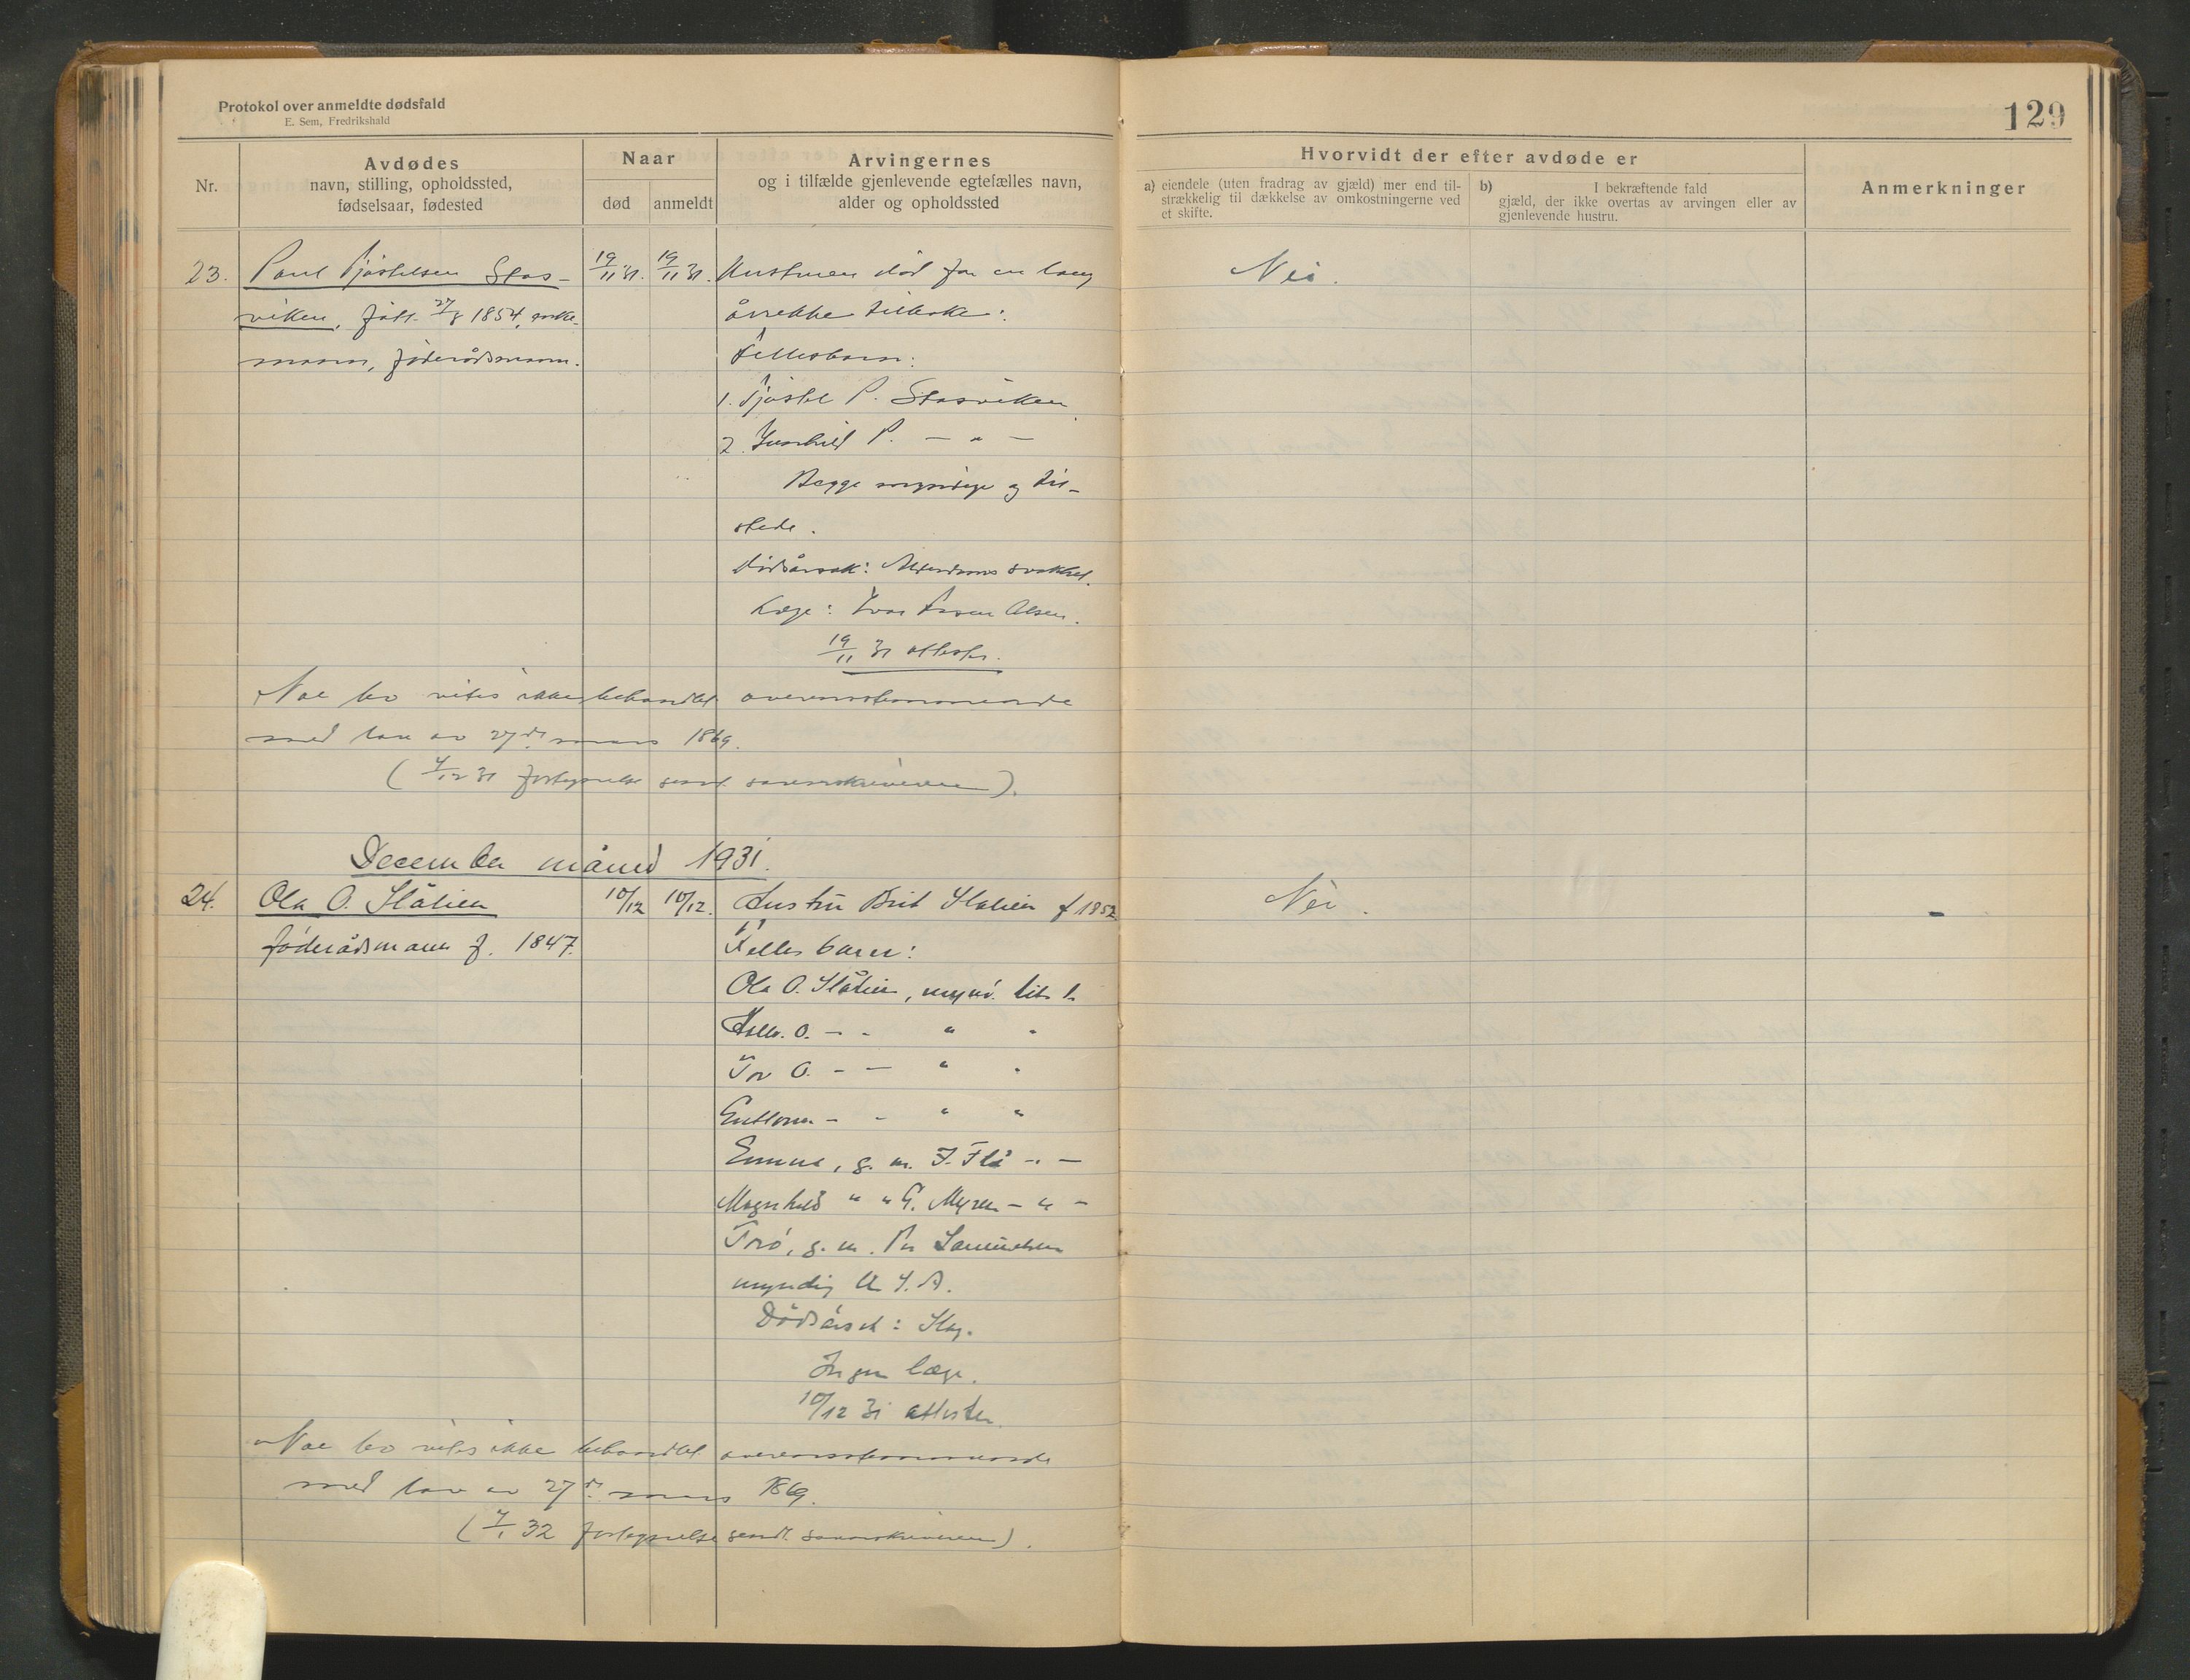 Protokol over anmeldte dødsfald
E. Sem, Fredrikshald
129
Nr.
Avdødes
navn, stilling, opholdssted,
fødselsaar, fødested
Naar
død
anmeldt
Arvingernes
og i tilfælde gjenlevende egtefælles navn,
alder og opholdssted
Hvorvidt der efter avdøde er
a) eiendele (uten fradrag av gjæld) mer end til-
strækkelig til dækkelse av omkostningerne ved
et skifte.
b) I bekræftende fald
gjæld, der ikke overtas av arvingen eller av
gjenlevende hustru.
Anmerkninger
23. Paul Tjøstelsen Stas- 19/11 31. 19/11 31. Hustruen død for en lang Nei.
viken, født 27/8 1854, enke- årrekke tilbake.
mann, føderådsmann. Fellesbarn:
1. Tjøstel P. Stasviken
2. Gunhild P. — " —
Begge myndige og til-
stede.
Dødsårsak: Alderdoms svakhet.
Læge: Ivar Olsen.
19/11 31 attester.
Noe bo vites ikke behandlet overensstemmende
med lov av 27de mars 1869.
(4/12 31 fortegnelse sendt sorenskriveren).
December måned 1931.
24. Ola O. Slåtien 10/12 10/12. Hustru Brit Slåtien f 1852 Nei. -
føderådsmann f. 1847. Felles barn:
Ola O. Slåtien, mynd. tils t.
O. - - " "
Tor O. - — " "
- - " "
Emma, g. m. J. Flå -.—
Magnhild " " G. Myren - " -
Tró, g. m. Per Samuelsen
myndig U. S. A.
Dødsårsak: Slag.
Ingen læge.
10/12 31 attester.
Noe bo vites ikke behandlet overensstemmende
med lov av 27de mars 1869.
(4/1 32 fortegnelse sendt sorenskriveren).